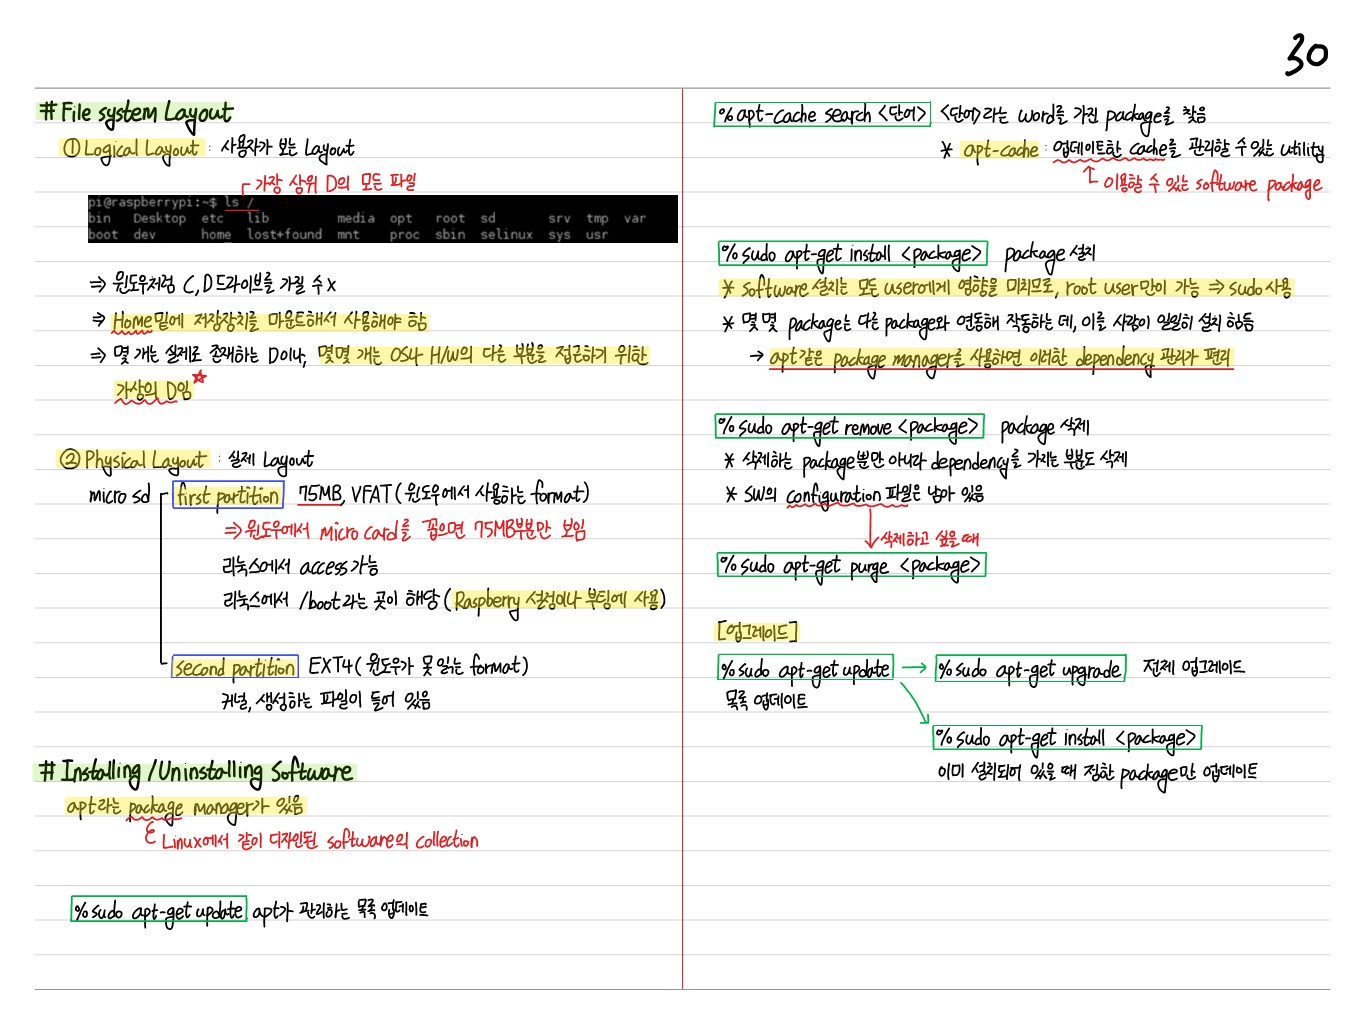 30
# File system Layout
① Logical Layout : 사용자가 보는 Layout
가장 상위 D의 모든 파일
pi@raspberrypi:~$ ls /
bin Desktop etc lib media opt root sd srv tmp var
boot dev home lost+found mnt proc sbin selinux sys usr
⇒ 윈도우처럼 C, D드라이브를 가질 수 x
⇒ Home밑에 저장장치를 마운트해서 사용해야 함
⇒ 몇 개는 실제로 존재하는 D이나, 몇몇 개는 OS나 H/W의 다른 부분을 접근하기 위한
가상의 D임 ☆
② Physical Layout : 실제 Layout
micro sd first partition 75MB, VFAT (윈도우에서 사용하는 format)
⇒ 윈도우에서 micro card를 꼽으면 75MB부분만 보임
리눅스에서 access가능
리눅스에서 /boot라는 곳이 해당 (Raspberry 설정이나 부팅에 사용)
second partition EXT4 (윈도우가 못 읽는 format)
커널, 생성하는 파일이 들어 있음
# Installing /Uninstalling Software
apt라는 package manager가 있음
Linux에서 같이 디자인된 software의 collection
% sudo apt-get update apt가 관리하는 목록 업데이트
% apt-cache search <단어> <단어>라는 word를 가진 package를 찾음
* apt-cache : 업데이트한 cache를 관리할 수 있는 utility
이용할 수 있는 software package
% sudo apt-get install <package> package 설치
* software 설치는 모든 user에게 영향을 미치므로, root user만이 가능 ⇒ sudo 사용
* 몇 몇 package는 다른 package와 연동해 작동하는 데, 이를 사람이 일일히 설치 힘듦
→ apt같은 package manager를 사용하면 이러한 dependency 관리가 편리
% sudo apt-get remove <package> package 삭제
* 삭제하는 package뿐만 아니라 dependency를 가지는 부분도 삭제
* SW의 configuration 파일은 남아 있음
삭제하고 싶을 때
% sudo apt-get purge <package>
[업그레이드]
% sudo apt-get update → % sudo apt-get upgrade 전체 업그레이드
목록 업데이트
% sudo apt-get install <package>
이미 설치되어 있을 때 정한 package만 업데이트